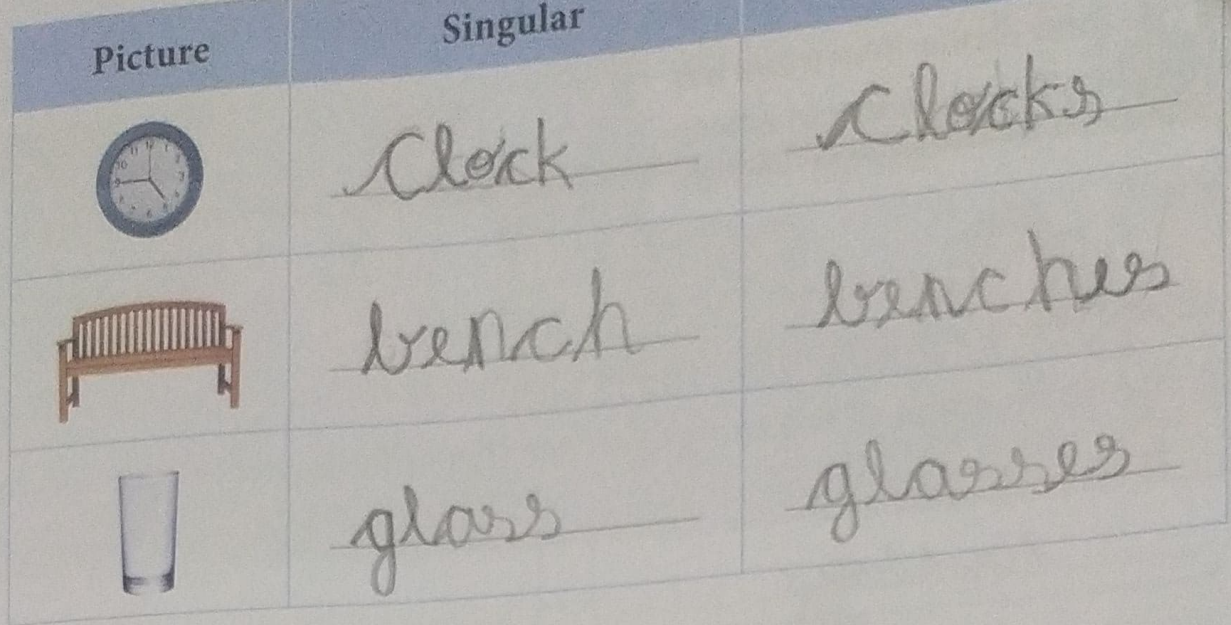 Picture Singular
Clock Clocks
bench benches
glass glasses